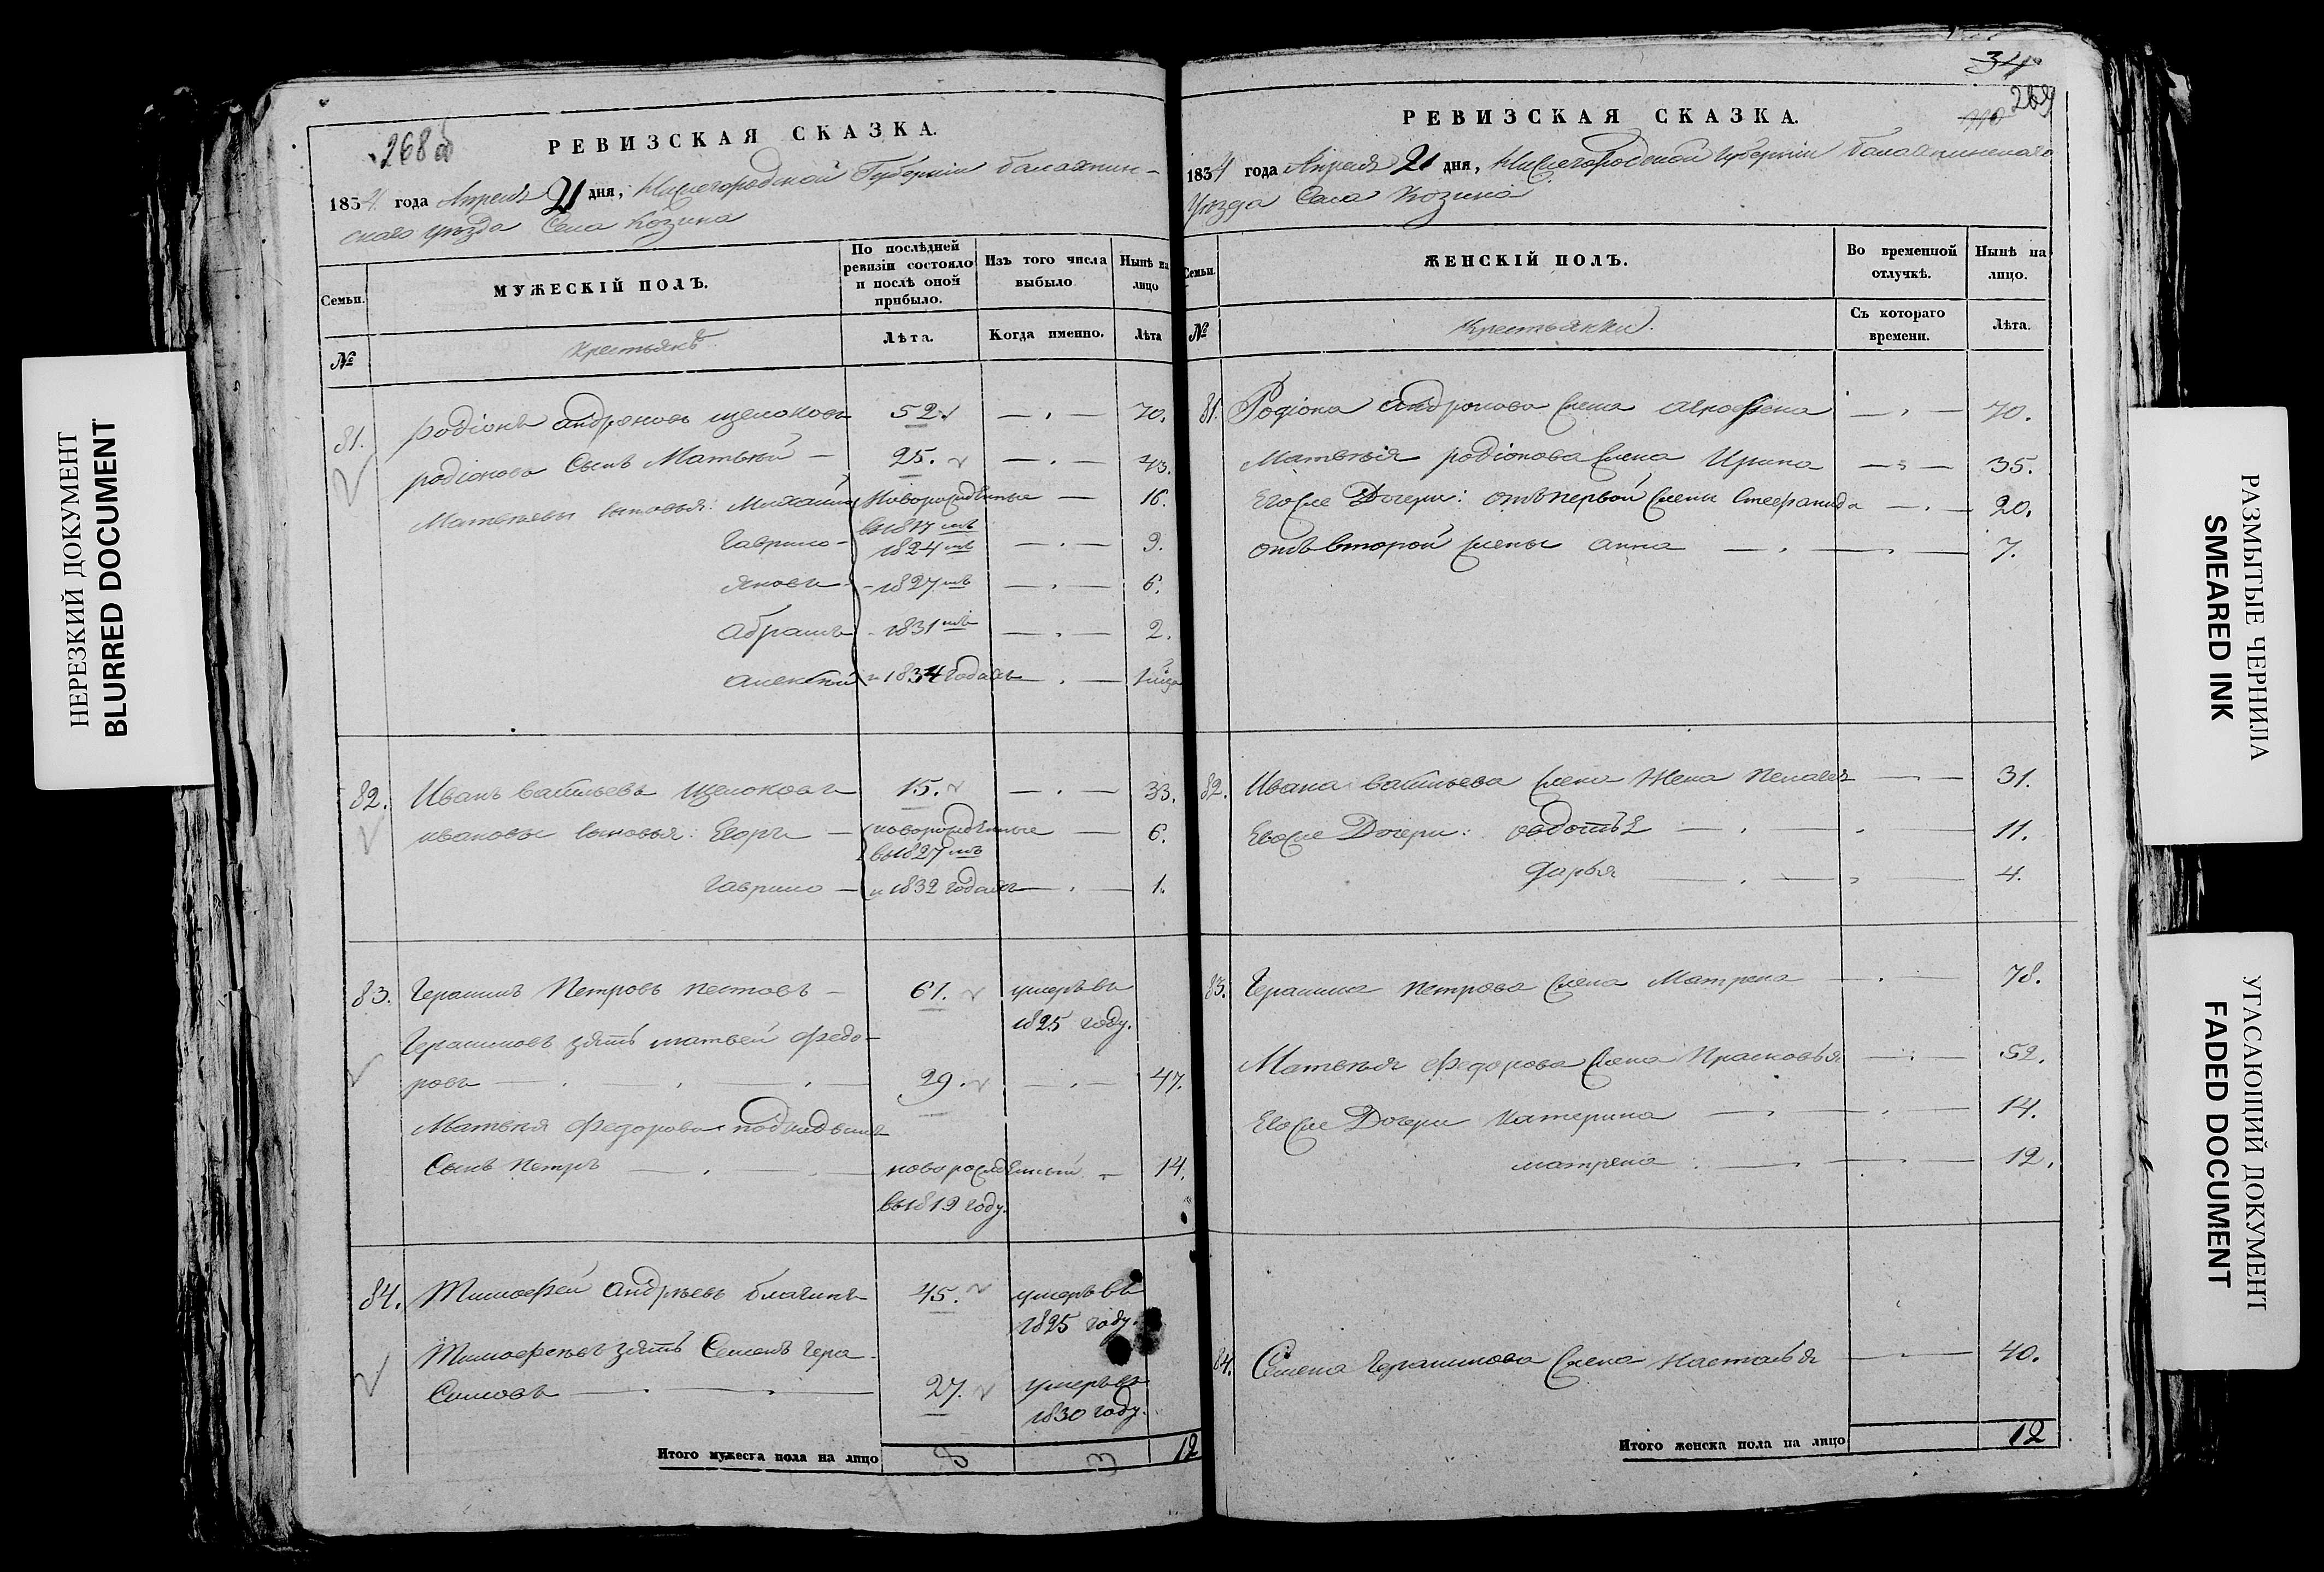 НЕРЕЗКИЙ ДОКУМЕНТ
BLURRED DOCUMENT
268 об
РЕВИЗСКАЯ СКАЗКА.
1834 года Апреля 21 дня, Нижегородской Губернии балахнин-
скаго уѣзда Села Козина
Семьи.
МУЖЕСКІЙ ПОЛЪ.
По послѣдней ревизіи состояло и послѣ оной прибыло.
Изъ того числа выбыло
Нынѣ на лицо
№
Крестьянъ.
Лѣта.
Когда именно.
Лѣта
81. родіонъ андроновъ щелоковъ 52. — . — 70.
родіонова Сынъ Матвѣй — 25. — . — 43.
Матвѣевы сыновья: Михаила Новорожденные — 16.
в 1817 мъ
Гаврило — 1824 мъ — . — 9.
Яковъ — 1827 мъ — . — 6.
Абрамъ - 1831 мъ — . — 2.
алексѣй и 1834 годахъ — . —
82. Иванъ васильевъ щелоковъ 15. — . — 33.
ивановы сыновья: Егоръ — новорожденные — 6.
в 1827 мъ
гаврило — и 1832 годахъ — . — 1.
83. Герасимъ Петровъ пестовъ — 61. умеръ въ
1825 году.
Герасимовъ зять матвей федо-
ровъ — . . . — 29. — . — 47.
Матвѣя Федорова
Сынъ Петръ — . — новорожденный — 14.
в 1819 году.
84. Тимофей андрѣевъ благинъ 45. умеръ въ
1825 году.
Тимофеевъ зять Семенъ гера-
симовъ — . — . — 27. умеръ въ
1830 году.
Итого мужеска поля на лицо 8 3 12
34
269
РЕВИЗСКАЯ СКАЗКА.
1834 года Апреля 21 дня, Нижегородской губернии балахнинскаго
Уѣзда Села Козина
Семьи.
ЖЕНСКІЙ ПОЛЪ.
Во временной отлучкѣ.
Нынѣ на лицо.
№
Крестьянки.
Съ котораго времени.
Лѣта.
81. Родіона андронова жена — . — 70.
Матвѣя родіонова жена Ирина — . — 35.
Егоже Дочери: отъ первой жены Стефанида — . — 20.
отъ второй жены анна — . — . — 7.
82. Ивана васильева жена Пелагея — . — 31.
Егоже Дочери: федотья — . — . — 11.
дарья — . — . — 4.
83. Герасима петрова жена Матрена — . — 78.
Матвѣя федорова жена Прасковья — . — 52.
Егоже Дочери Катерина — . — . — 14.
матрена — . — . — 12.
84. Семена Герасимова жена настасья — . — 40.
Итого женска пола на лицо 12
РАЗМЫТЫЕ ЧЕРНИЛА
SMEARED INK
УГАСАЮЩИЙ ДОКУМЕНТ
FADED DOCUMENT